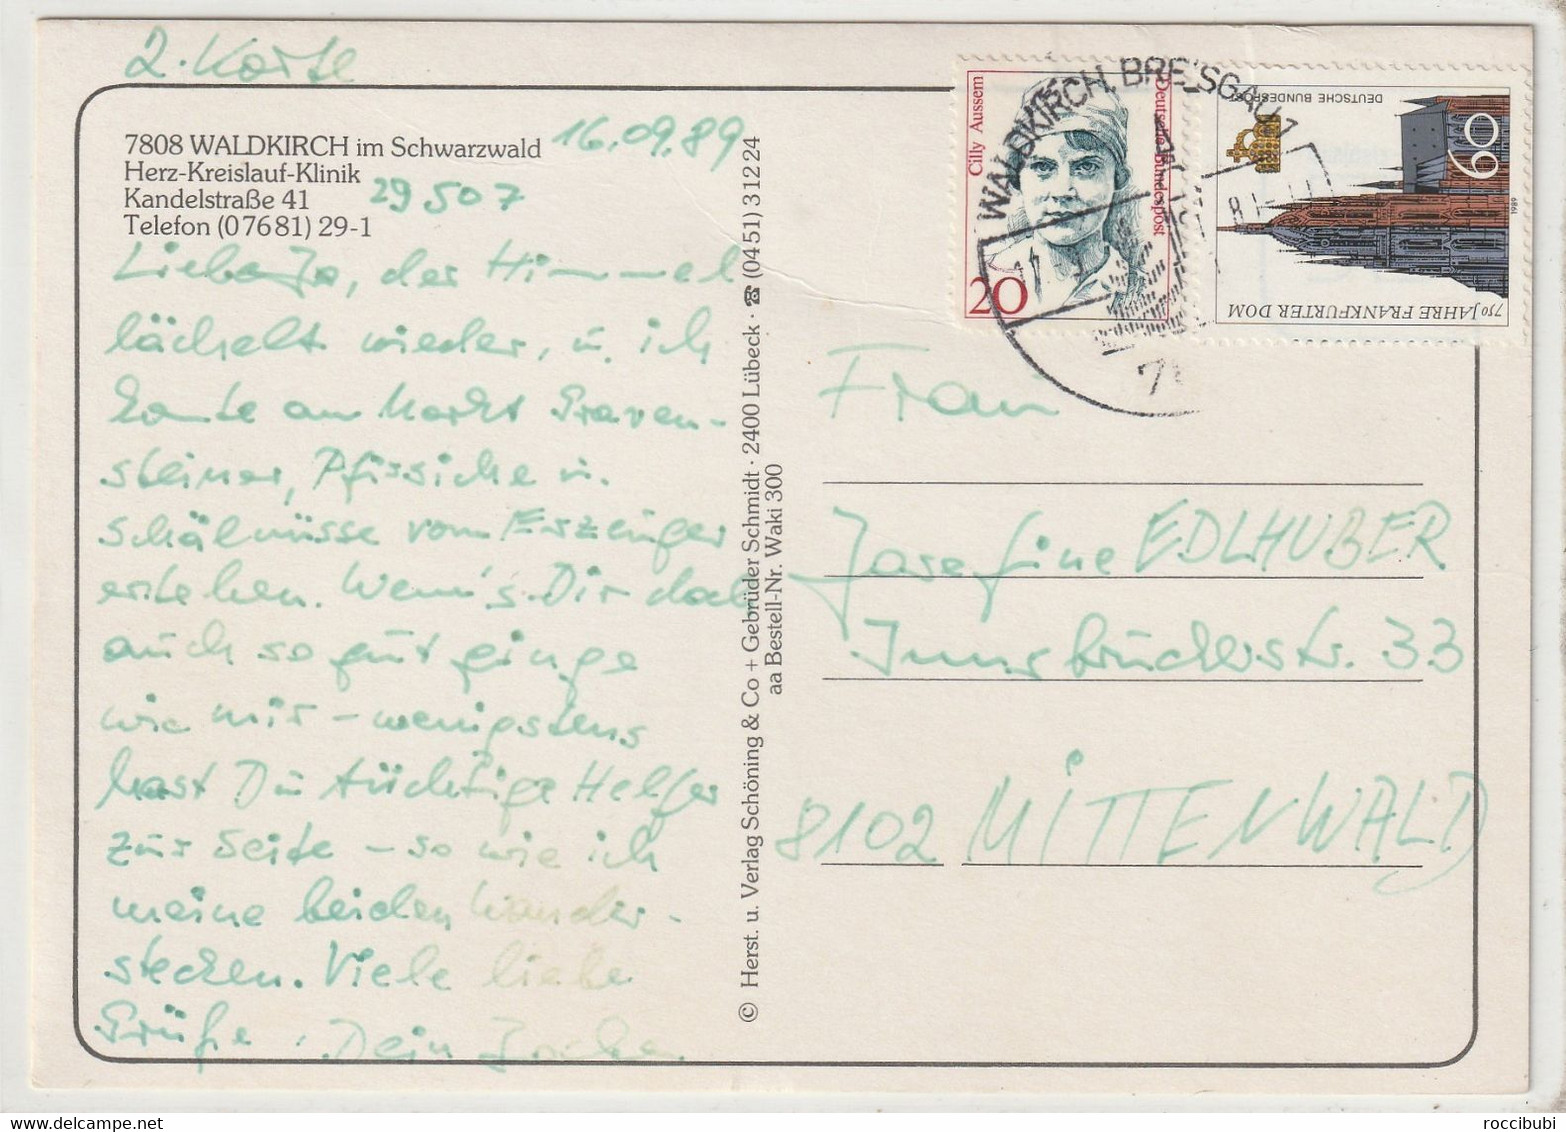 2. Karte
7808 WALDKIRCH im Schwarzwald
Herz-Kreislauf-Klinik
Kandelstraße 41
Telefon (07681) 29-1
16.09.89
29507
Liebe, der Himmel
lächelt wieder, u. ich
konnte am Markt Graven-
steiner, Pfirsiche u.
Schälnüsse vom Erzeuger
erstehen. Wenn's Dir doch
auch so gut ginge
wie mir – wenigstens
hast Du tüchtige Helfer
zur Seite – so wie ich
meine beiden Wander-
stecken. Viele liebe
Grüße, Dein
© Herst. u. Verlag Schöning & Co + Gebrüder Schmidt · 2400 Lübeck · ☎ (0451) 31224
aa Bestell-Nr. Waki 300
Cilly Aussem
Deutsche Bundespost
20
DEUTSCHE BUNDESPOST
60
1989
750 JAHRE FRANKFURTER DOM
WALDKIRCH, BREISGAU 1
Frau
Josefine EDLHUBER
Innsbruckerstr. 33
8102 MITTENWALD
roccibubi